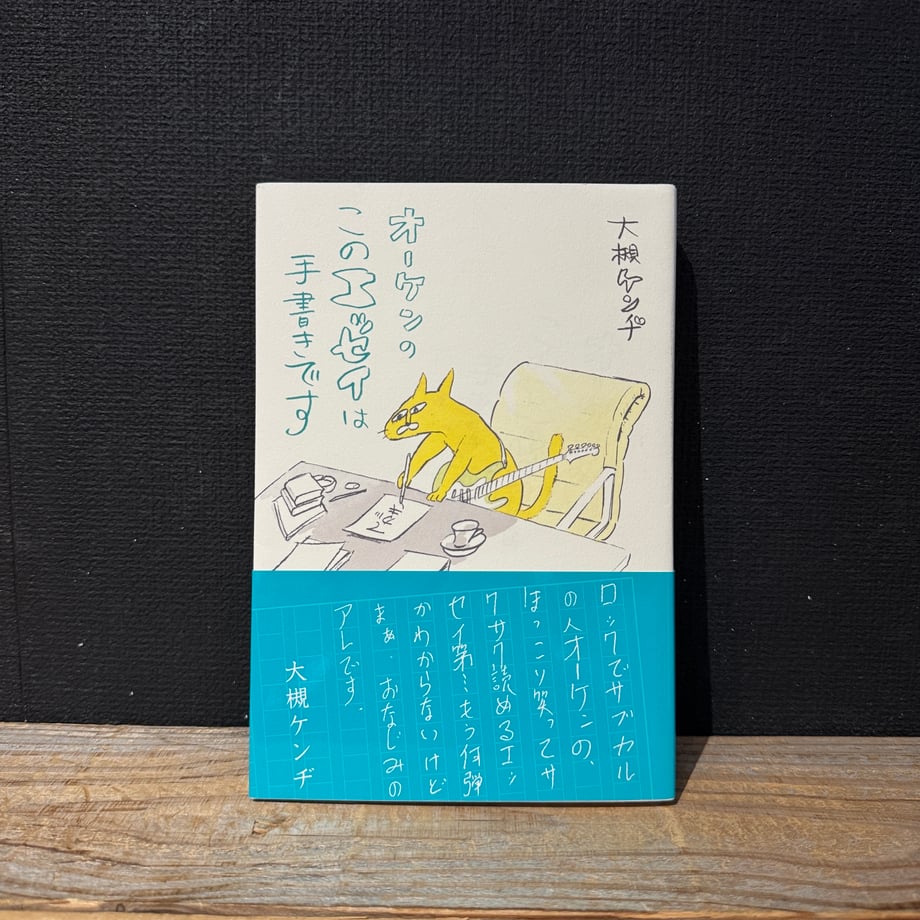 大槻ケンヂ
オーケンの
このエッセイは
手書きです
ロックでサブカル
の人オーケンの、
ほっこり笑ってサ
クサク読めるエッ
セイ第…もう何弾
かわからないけど
まぁ、おなじみの
アレです。
大槻ケンヂ